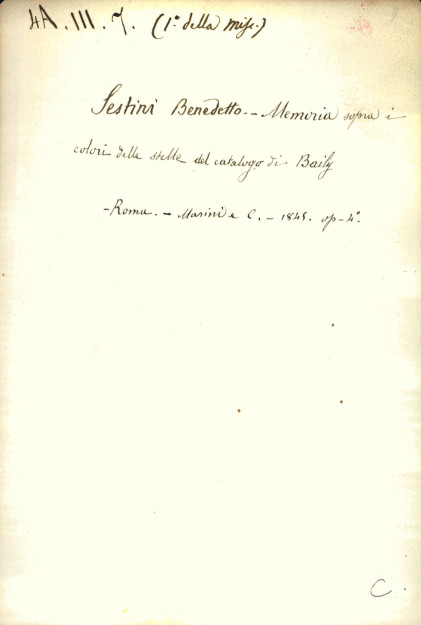 4A. III. 7. (1º della Misc.)
Sestini Benedetto. - Memoria sopra i
colori delle stelle del catalogo di Baily
- Roma. - Marini e C. - 1845. op - 4º.
C.